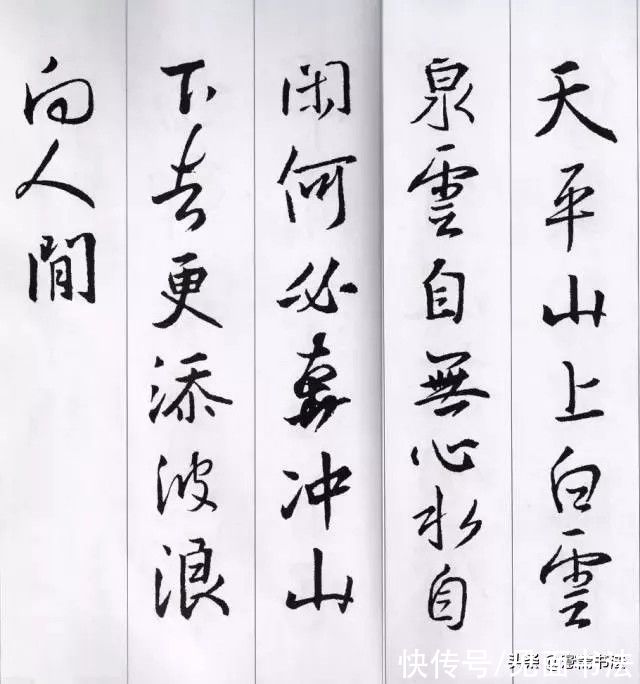 天平山上白雲
泉雲自無心水自
閑何必奔冲山
下去更添波浪
向人間
快传号/书法